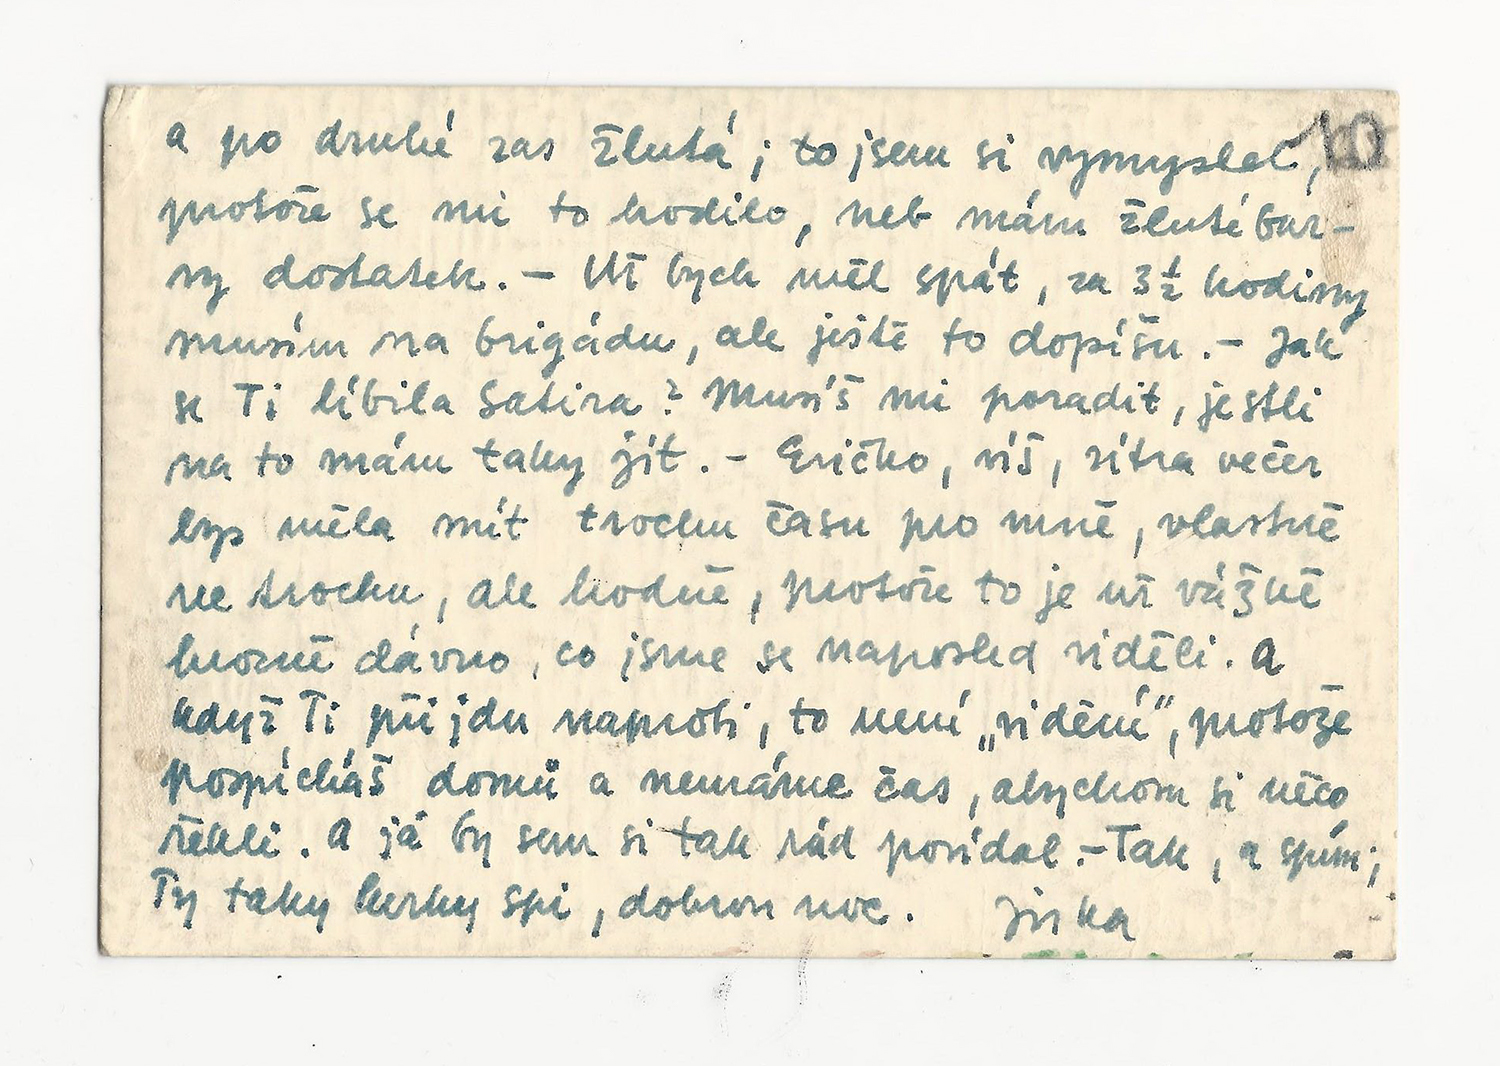 a po druhé zas žlutá; to jsem si vymyslel, 10
protože se mi to hodilo, neb mám žluté bar-
vy dostatek. – Už bych měl spát, za 3½ hodiny
musím na brigádu, ale ještě to dopíšu. – Jak
se Ti líbila Satira? Musíš mi poradit, jestli
na to mám taky jít. – Eričko, víš, zítra večer
bys měla mít trochu času pro mně, vlastně
ne trochu, ale hodně, protože to je už vážně
hrozně dávno, co jsme se naposled viděli. A
když Ti přijdu naproti, to není „vidění", protože
pospícháš domů a nemáme čas, abychom si něco
řekli. A já by sem si tak rád povídal. – Tak, a spím;
Ty taky hezky spi, dobrou noc. Jirka